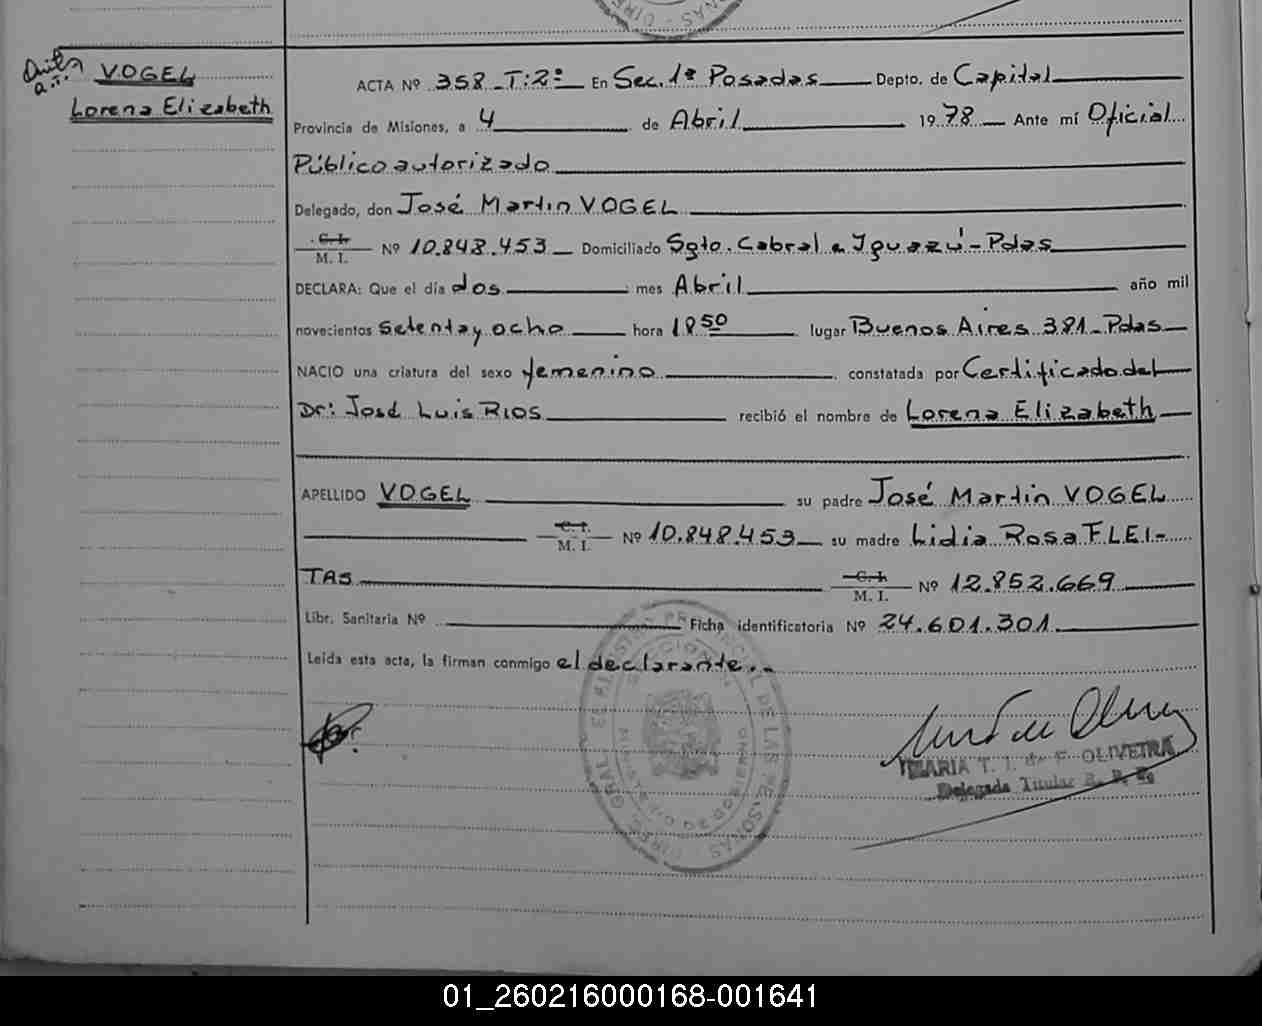 VOGEL
Lorena Elizabeth
ACTA Nº 358 T:2º En Sec. 1ª Posadas Depto. de Capital
Provincia de Misiones, a 4 de Abril 1978 Ante mí Oficial
Público autorizado
Delegado, don José Martin VOGEL
C. I.
M. I. Nº 10.848.453 Domiciliado Sgto. Cabral e Iguazú - Pdas
DECLARA: Que el día dos mes Abril año mil
novecientos setenta y ocho hora 18 50 lugar Buenos Aires 381 - Pdas
NACIO una criatura del sexo femenino constatada por Certificado del
Dr: José Luis RIOS recibió el nombre de Lorena Elizabeth
APELLIDO VOGEL su padre José Martin VOGEL
C. I.
M. I. Nº 10.848.453 su madre Lidia Rosa FLEI-
TAS C. I.
M. I. Nº 12.852.669
Libr. Sanitaria Nº Ficha identificatoria Nº 24.601.301
Leída esta acta, la firman conmigo el declarante.
MARIA T. I. de F. OLIVEIRA
Delegada Titular R. P. Es
01_260216000168-001641